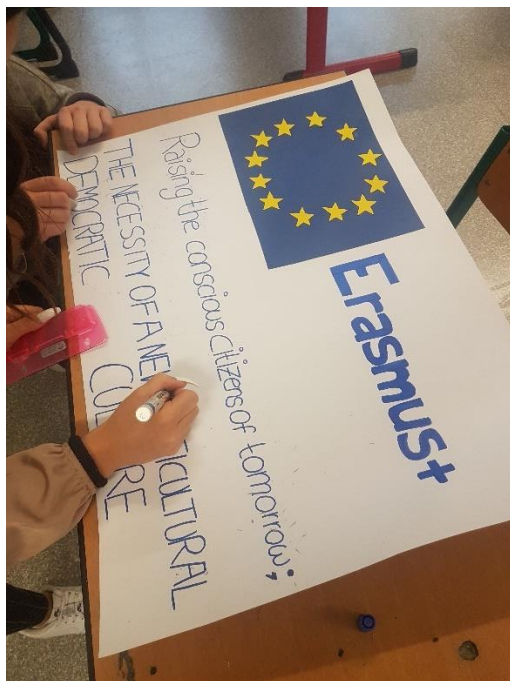 Erasmus+
Raising the conscious citizens of tomorrow;
THE NECESSITY OF A NEW
DEMOCRATIC